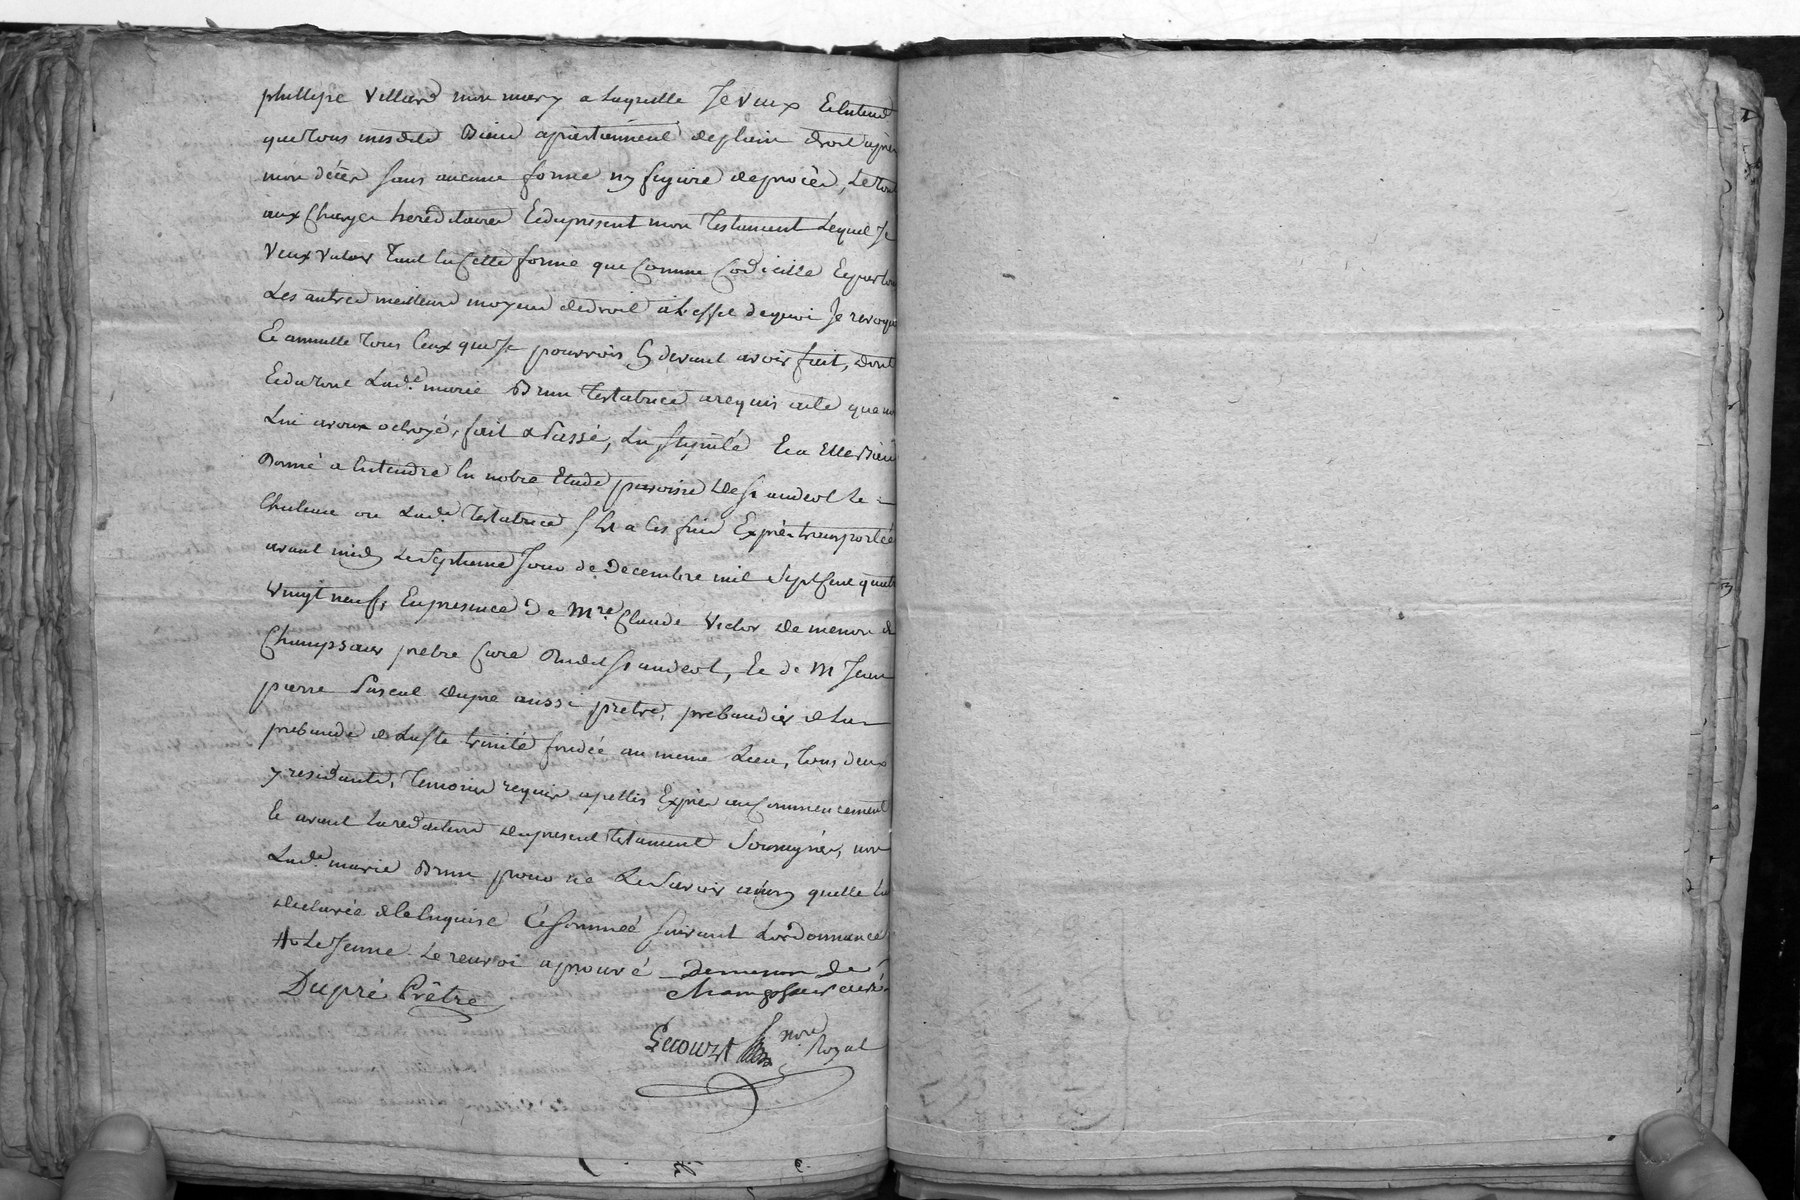 phillipe Villard mon mary a laquelle Je veux Et entend
que tous mesdits Biens apartiennent de plain droit après
mon décès sans aucune forme ny figure de procès, Le tout
aux charges hereditaires Et du present mon testament Lequel Je
veux valoir tant en cette forme que comme codicille Et par tous
Les autres meilleurs moyens de droit a L'effet de quoi Je revoque
Et annulle tous ceux que Je pourrois cy devant avoir fait, dont
Et du tout Lad.e marie Brun testatrice a requis acte que nous
Lui avons octroyé, fait & Passé, Lu stipulé Et a Elle Bien
Donné a Entendre En notre Etude paroisse de St andeol Le
ou Lad.e testatrice s'est a ces fins Exprès transportée
avant midy Le septieme Jour de Decembre mil sept cent quatre
vingt neuf, En presence de Mre. Claude Victor de menon de
Champsaur pretre Curé dudit St andeol, Et de M Jean
pierre Pascal dupré aussi pretre, prebandier de La
prebande de La ste trinité fondée au meme Lieu, tous deux
y residants, temoins requis apellés Exprès au commencement
Et avant La redaction du present testament soussignés, non
Lad.e marie Brun pour ne Le savoir ainsy quelle La
declarée de le Enquise Et sommée suivant L'ordonnance
# Le Jeune Le renvoi aprouvé Demenon de
Champsaur curé
Dupré Prêtre
Lecourt nore
Royal